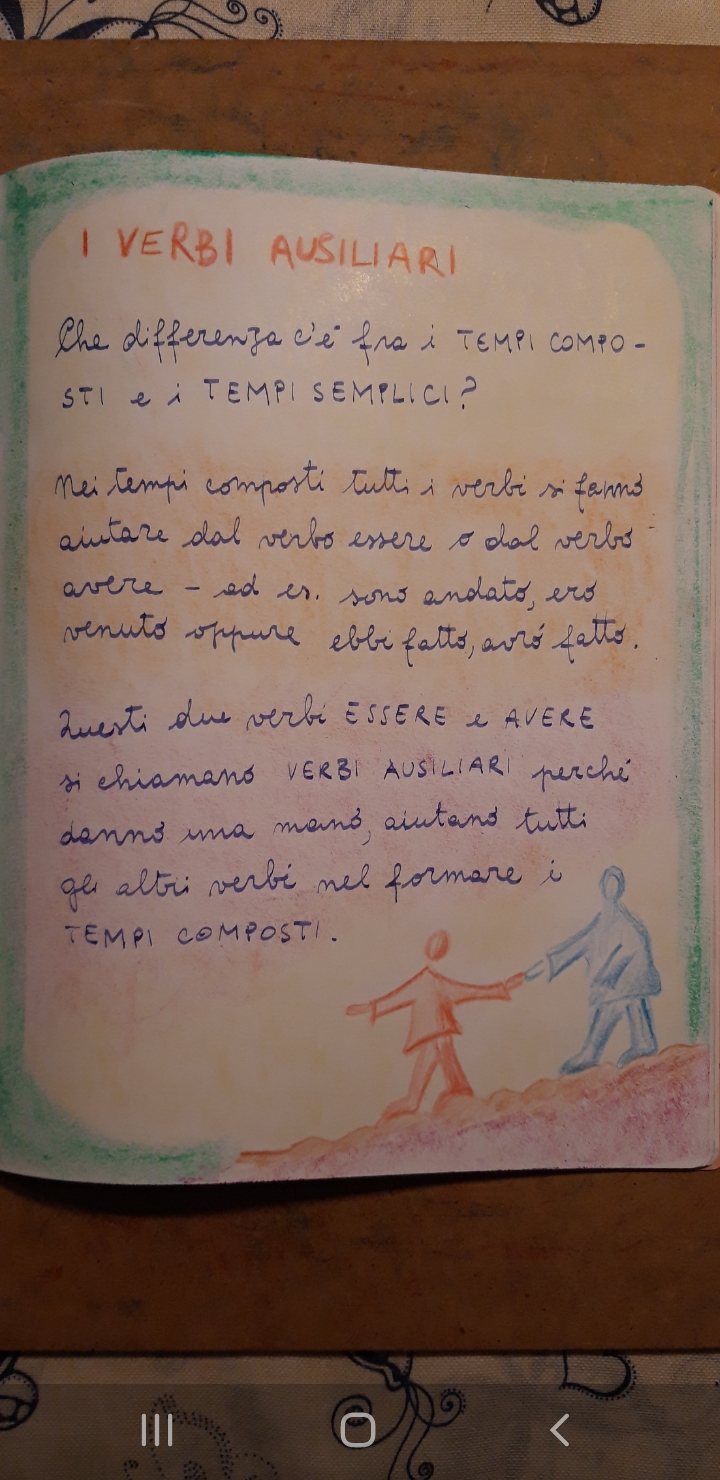 I VERBI AUSILIARI
Che differenza c'è fra i TEMPI COMPO-
STI e i TEMPI SEMPLICI?
Nei tempi composti tutti i verbi si fanno
aiutare dal verbo essere o dal verbo
avere - ad es. sono andato, ero
venuto oppure ebbi fatto, avró fatto.
Questi due verbi ESSERE e AVERE
si chiamano VERBI AUSILIARI perché
danno una mano, aiutano tutti
gli altri verbi nel formare i
TEMPI COMPOSTI.